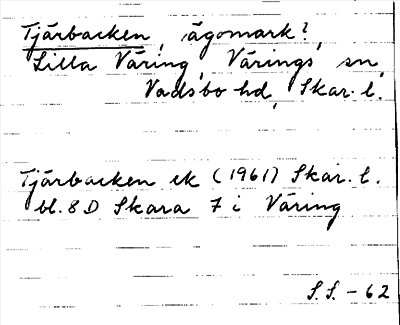 Tjärbacken, ägomark?,
Lilla Väring, Värings sn,
Vadsbo hd, Skar. l.
Tjärbacken ek (1961) Skar. l.
bl. 8D Skara 7 i Väring
S.S. - 62